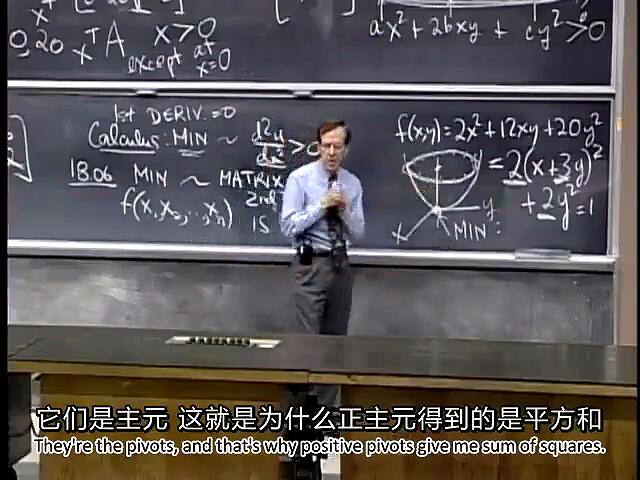 0,20 xᵀA x>0
except at x=0
ax²+2bxy + cy²>0
1st DERIV.=0
Calculus: MIN ~ d²y/dx² >0
18.06 MIN ~ MATRIX
2nd
f(x₁,x₂,...,xₙ) IS
f(x,y)=2x²+12xy+20y²
=2(x+3y)²
+2y²=1
y
x
MIN:
它们是主元 这就是为什么正主元得到的是平方和
They're the pivots, and that's why positive pivots give me sum of squares.